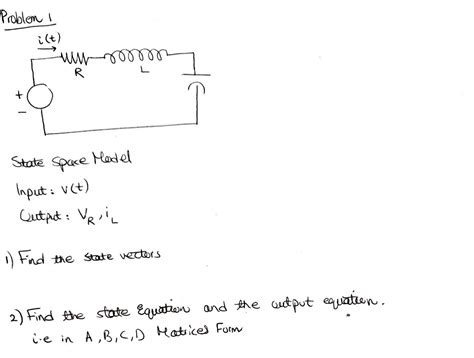 Problem 1
i(t)
R
L
+
-
State Space Model
Input: v(t)
Output: VR, iL
1) Find the state vectors
2) Find the state Equation and the output equation.
i.e in A, B, C, D Matrices Form